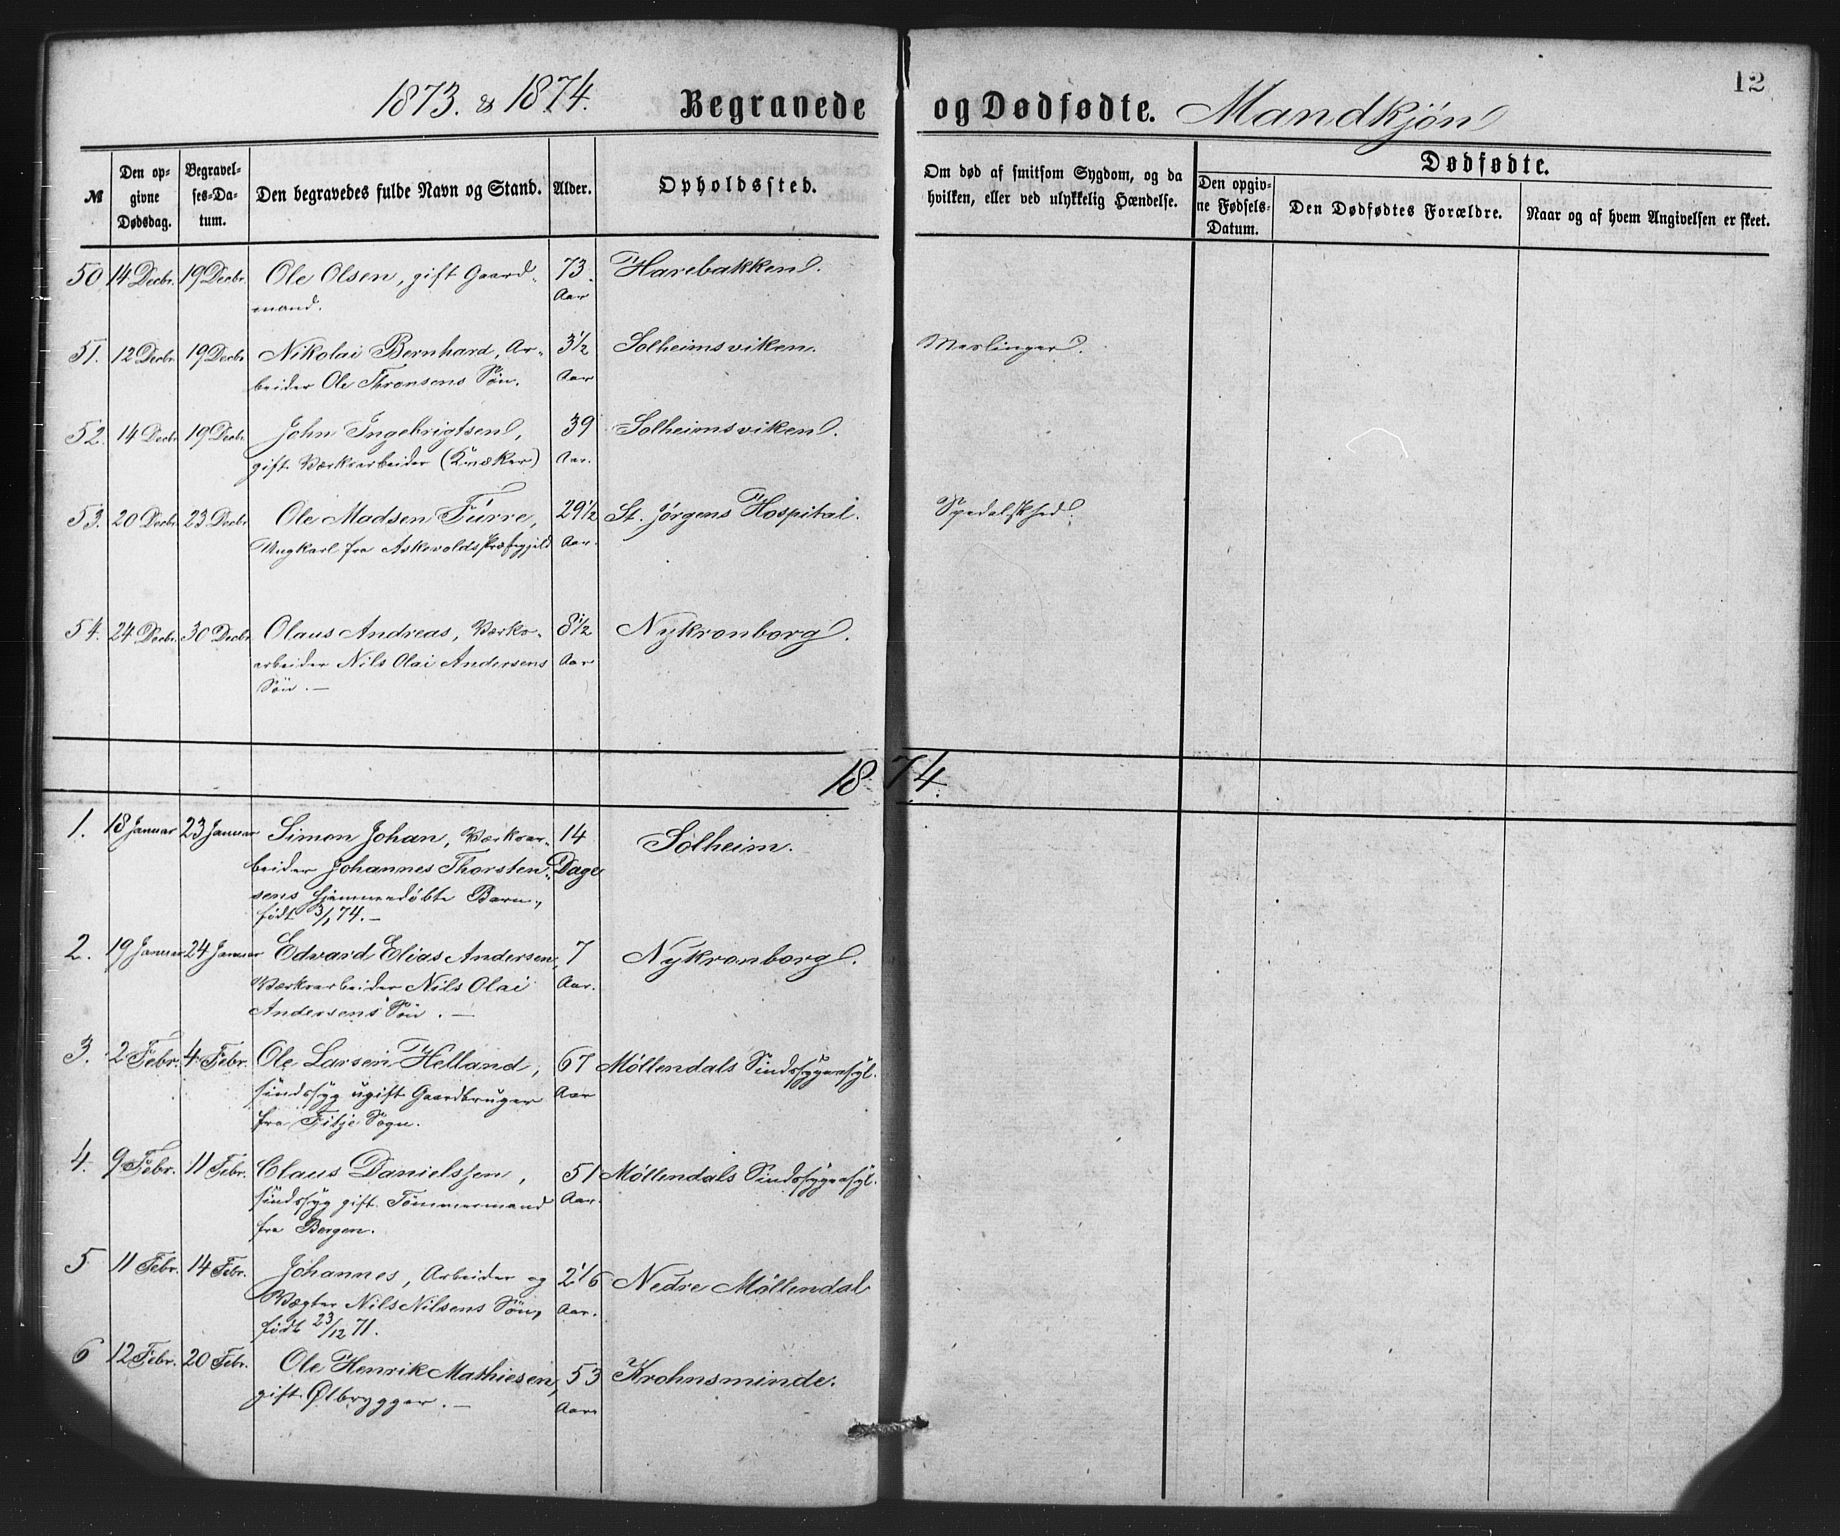 12
1873. & 1874. Begravede og Dødfødte. Mandkjøn
№
Den op-
givne
Dødsdag.
Begravel-
ses-Da-
tum.
Den begravedes fulde Navn og Stand.
Alder.
Opholdssted.
Om død af smitsom Sygdom, og da
hvilken, eller ved ulykkelig Hændelse.
Dødfødte.
Den opgiv-
ne Fødsels-
Datum.
Den Dødfødtes Forældre.
Naar og af hvem Angivelsen er skeet.
50 14 Decbr. 19 Decbr. Ole Olsen, gift Gaard- 73 Harebakken.
mand. Aar
51. 12 Decbr. 19 Decbr. Nikolai Bernhard, Ar- 3½ Solheimsviken. Meslinger.
beider Ole Thronsens Søn. Aar
52. 14 Decbr. 19 Decbr. John Ingebrigtsen, 39 Solheimsviken.
gift Værksarbeider (Knæker) Aar.
53. 20 Decbr. 23 Decbr. Ole Madsen Furre, 29½ St. Jørgens Hospital. Spedalskhed.
Ungkarl fra Askevolds Præstegjeld Aar.
54. 24 Decbr. 30 Decbr. Olaus Andreas, Værks- 8½ Nykronborg.
arbeider Nils Olai Andersens Aar
Søn. —
1874.
1. 18 Januar 23 Januar Simon Johan, Værksar- 14 Solheim.
beider Johannes Thorsten- Dage
sens hjemmedøbte Barn,
født 3/1 74. —
2. 19 Januar 24 Januar Edvard Elias Andersen, 7 Nykronborg.
Værksarbeider Nils Olai Aar.
Andersens Søn. —
3. 2 Febr. 4 Febr. Ole Larsen Helland, 67 Møllendals Sindssygeasyl.
sindssyg ugift Gaardbruger Aar
fra Fitje Sogn.
4. 9 Febr. 11 Febr. Claus Danielssen, 51 Møllendals Sindssygeasyl.
sindssyg gift Tømmermand Aar.
fra Bergen.
5 11 Febr. 14 Febr. Johannes, Arbeider og 2 1/6 Nedre Møllendal
Vægter Nils Nilsens Søn, Aar.
født 23/12 71.
6 12 Febr. 20 Febr. Ole Henrik Mathiesen, 53 Krohnsminde.
gift Ølbrygger. — Aar